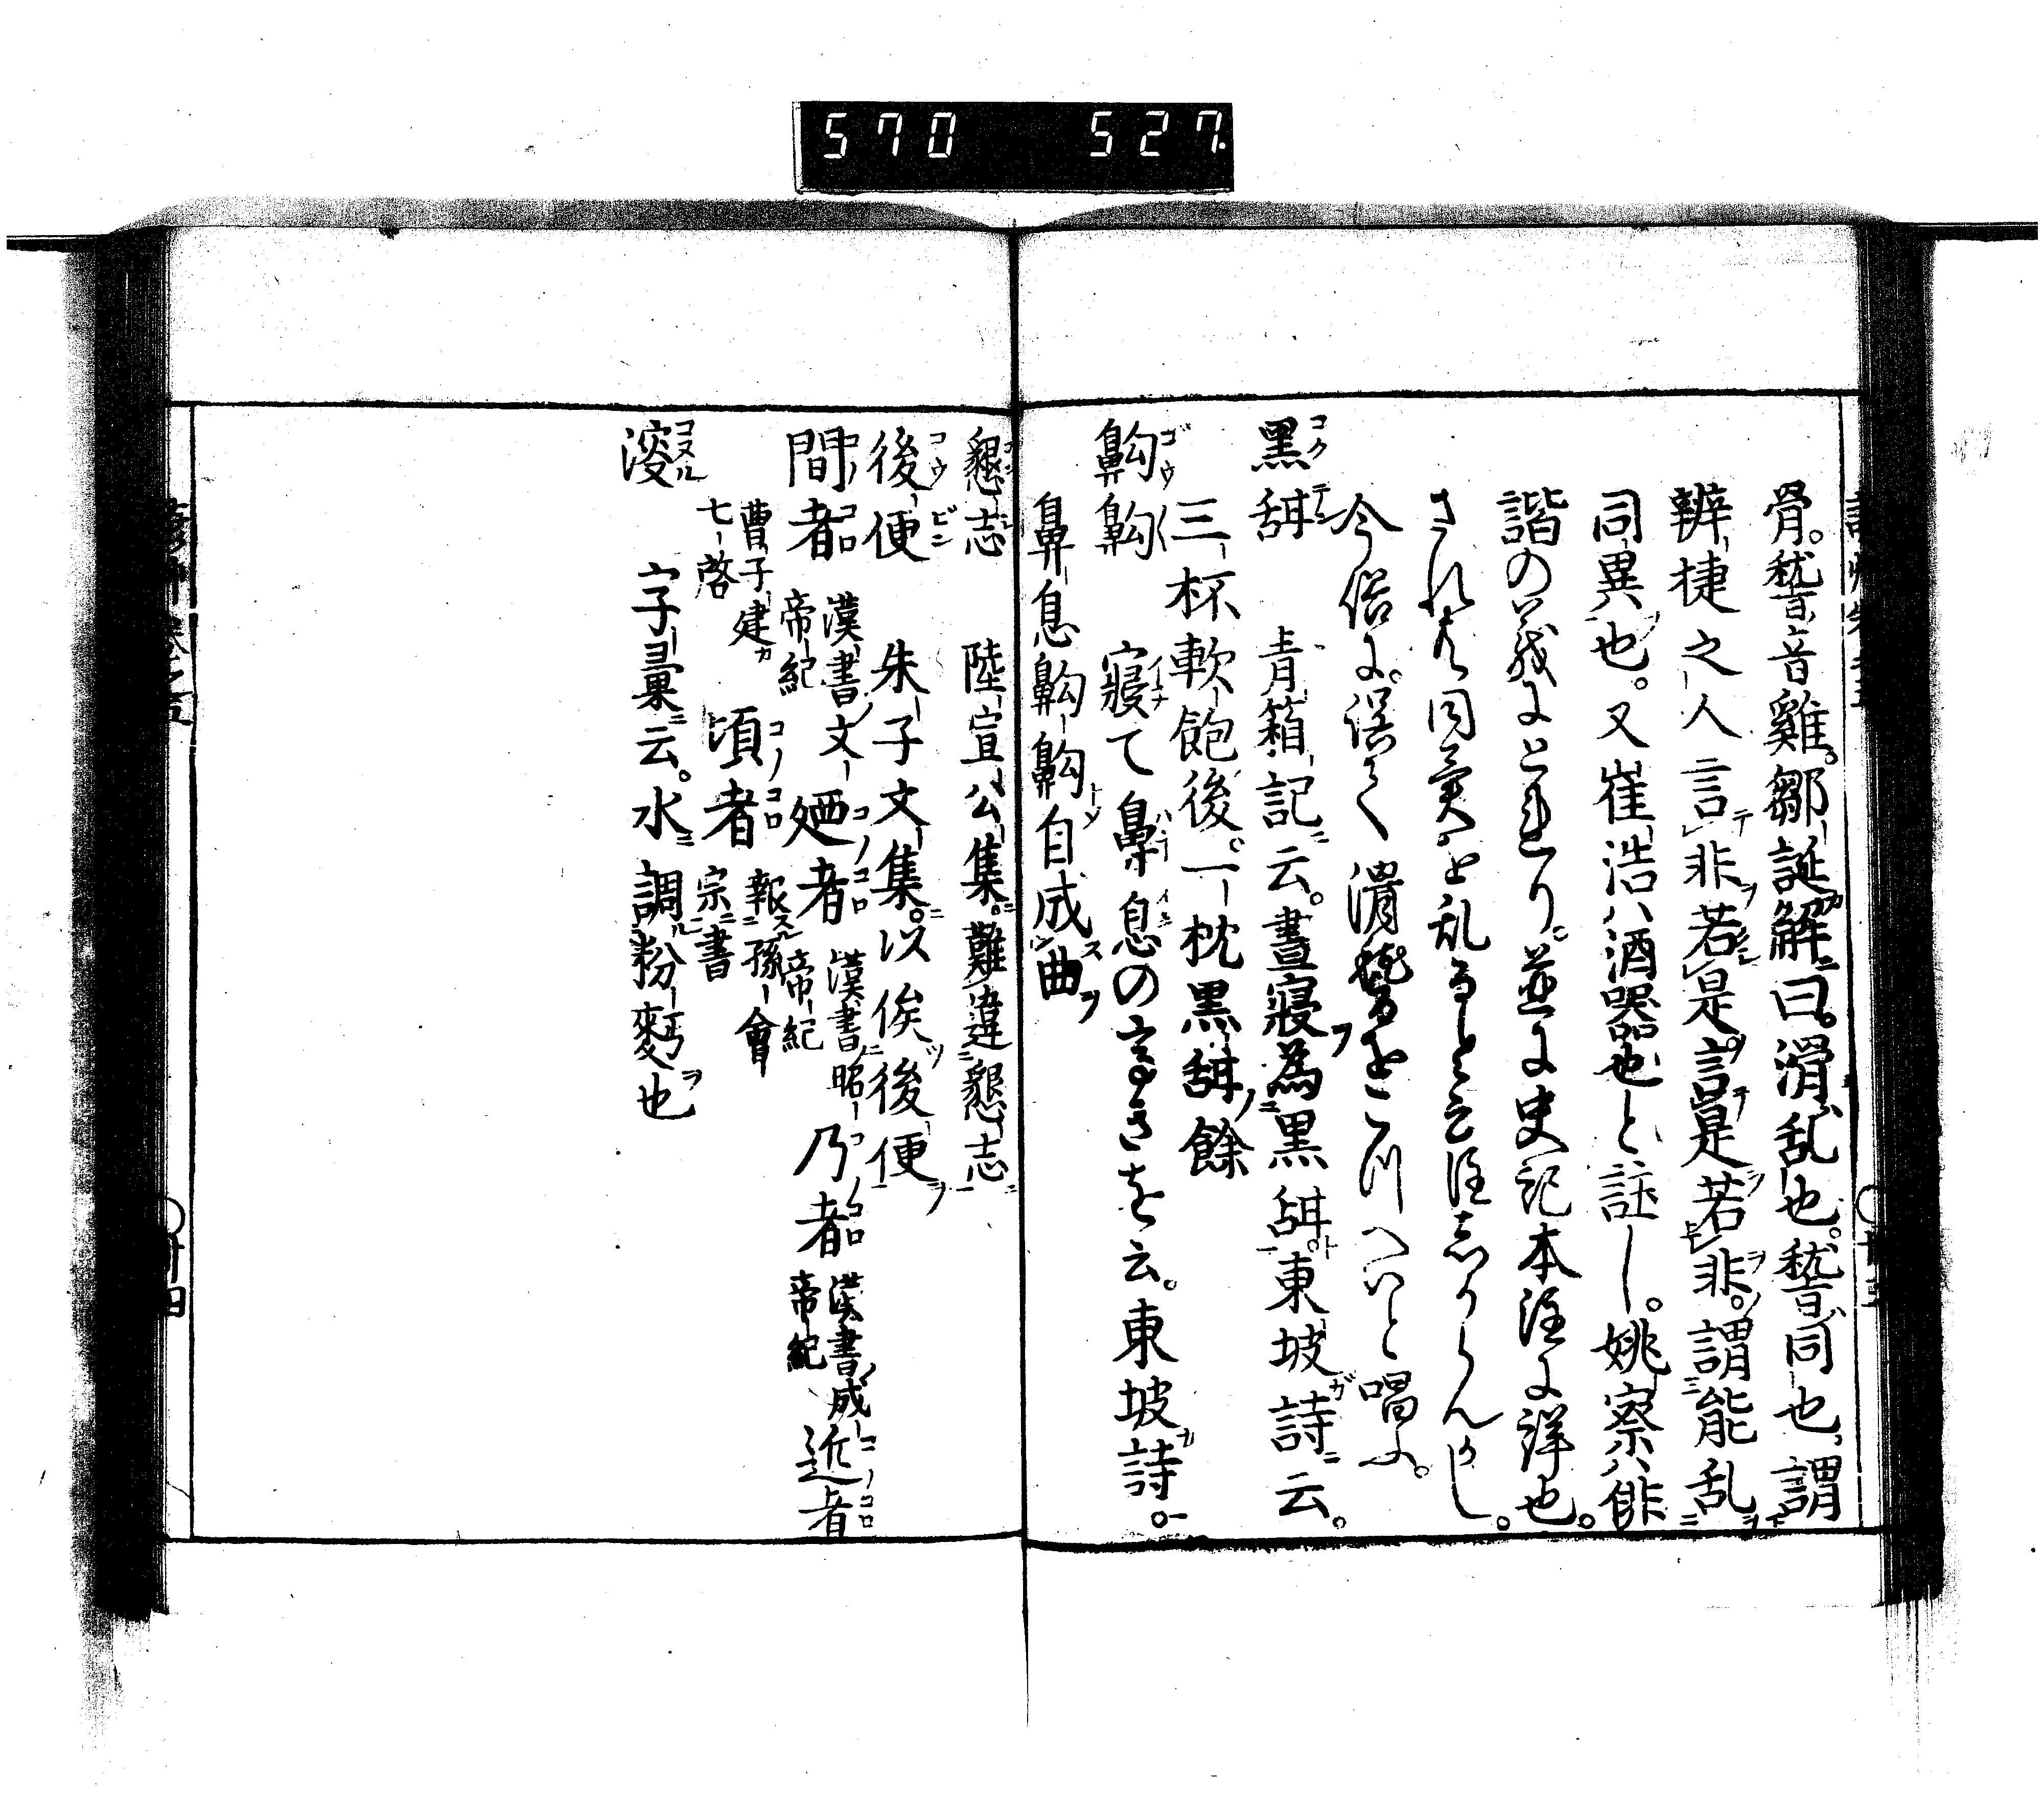 570 527
骨。嵆音雞。鄒誕解曰。滑乱也。嵆同也。謂
辨捷之人言非若是。言是若非。謂能乱
同異也。又崔浩ハ酒器也と註し。姚察ハ俳
諧の義によれり。並に史記本注に詳也。
されは同異を乱ると云注しかるへし。
今俗に。誤て滑稽をこつけいと唱ふ。
黒甜 青箱記ニ云。晝寢為黒甜。東坡詩ニ云。
三杯軟飽後。一枕黒甜餘
齁齁 寢て鼻息の高きを云。東坡詩。
鼻息齁齁自成曲
懇志 陸宣公集。難違懇志
後便 朱子文集。以俟後便
間者 漢書文帝紀 廼者 漢書昭帝紀 乃者 漢書成帝紀 近者
曹子建七啓 頃者 報孫會宗書
溲 字彙云。水調粉麪也